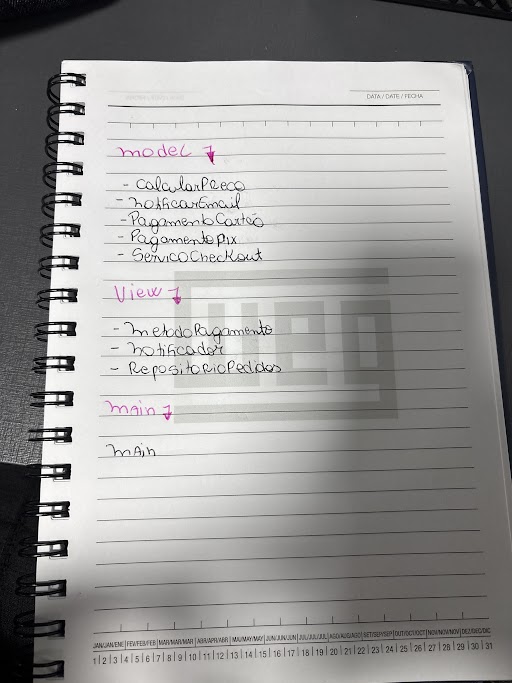 DATA / DATE / FECHA
model
- CalcularPreco
- NotificarEmail
- PagamentoCartão
- PagamentoPix
- ServicoCheckout
View
- metodoPagamento
- Notificador
- RepositorioPedidos
main
main
JAN/JAN/ENE | FEV/FEB/FEB | MAR/MAR/MAR | ABR/APR/ABR | MAI/MAY/MAY | JUN/JUN/JUN | JUL/JUL/JUL | AGO/AUG/AGO | SET/SEP/SEP | OUT/OCT/OCT | NOV/NOV/NOV | DEZ/DEC/DIC
1 | 2 | 3 | 4 | 5 | 6 | 7 | 8 | 9 | 10 | 11 | 12 | 13 | 14 | 15 | 16 | 17 | 18 | 19 | 20 | 21 | 22 | 23 | 24 | 25 | 26 | 27 | 28 | 29 | 30 | 31